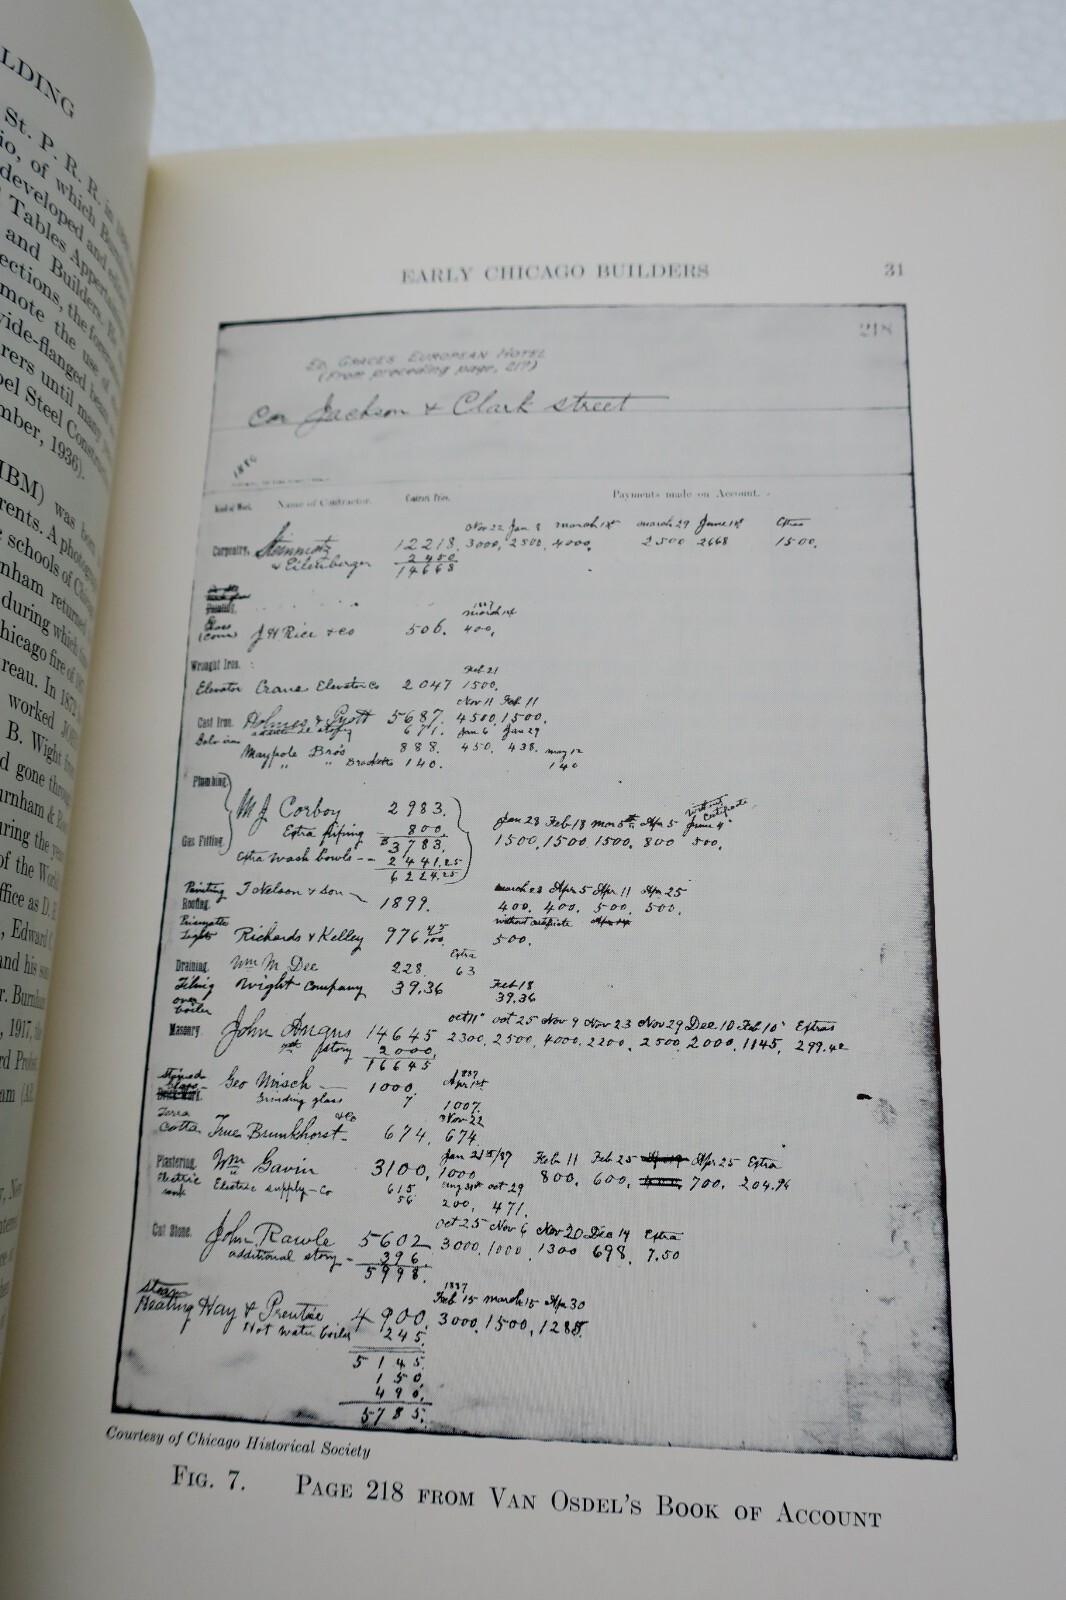 LDING
St. P. R. R. in
io, of which
developed and
Tables
and Builders.
ections, the
mote the use of
wide-flanged
rers until many
el Steel
mber, 1936).
IBM) was
rents. A
schools of
nham returned
during which
hicago fire of
reau. In
worked
B. Wight
d gone
urnham &
ring the
of the
ffice as D.
, Edward
and his
r. Burnham
, 1917,
EARLY CHICAGO BUILDERS 31
218
ED. GRACES EUROPEAN HOTEL
(From preceding page, 217)
Cor Jackson & Clark street
1886
Kind of Work. Name of Contractor. Contract Price. Payments made on Account.
Nov 22 Jan 8 march 1st march 29 June 1st Extra
Carpentry, Steinmetz 12218. 3000, 2500, 4000, 2500 2668 1500.
& Eilenberger 2450
14668
1887
march 14
Glass J H Rice & co 506. 400,
Wrought Iron. Feb 21
Elevator Crane Elevator Co 2047 1500.
Nov 11 Feb 11
Cast Iron. Holmes & Pyott 5687. 4500, 1500.
671. Jan 6 Jan 29
Maypole Bro's 888. 450, 438. may 12
" " Brackets 140. 140
Plumbing,
M J Corboy 2983. Jan 28 Feb 18 Apr 5 June 4" without certificate
Extra piping 800. 1500, 1500, 1500, 800 500,
Gas Fitting, $3783.
Extra wash bowls -- 2441.25
6224.25
Painting J Nelson & Son march 23 Apr 5 Apr 11 Apr 25
Roofing. 1899. 400, 400, 500, 500.
Prismatic without certificate
Lights Richards & Kelley 976 45/100 500.
Extra
Draining. Wm M Dee 228. 63
Tiling Wight company 39.36 Feb 18
over boiler 39.36
oct 11" oct 25 Nov 9 Nov 23 Nov 29 Dec 10 Feb 10 Extras
Masonry. John Angus 14645 2300, 2500, 4000, 2200, 2500, 2000, 1145, 299.42
story 2000,
16645
Stained Glass 1887
Geo Misch 1000. Apr 1st
Grinding glass 7 1007.
Terra & Co Nov 22
Cotta True Brunkhorst 674, 674.
Jan 21st/87 Feb 11 Feb 25 Apr 25 Extra
Plastering. Wm Gavin 3100, 1000 800, 600, 700, 204.96
Electric work Electric supply Co 615 oct 29
56 200, 471.
oct 25 Nov 6 Nov 20 Dec 14 Extra
Cut Stone. John Rawle 5602 3000, 1000, 1300 698, 7.50
additional story - 396.
5998.
Steam 1887
Feb 15 march 15 Apr 30
Heating Hay & Prentice 4900, 3000, 1500, 1285.
Hot water boiler 245.
5145.
150
490.
5785.
Courtesy of Chicago Historical Society
FIG. 7. PAGE 218 FROM VAN OSDEL'S BOOK OF ACCOUNT